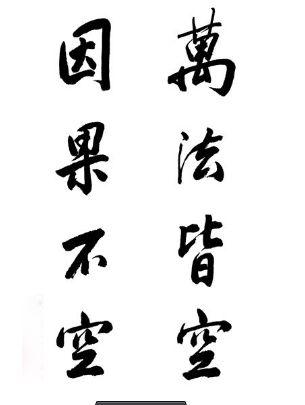 萬法皆空
因果不空